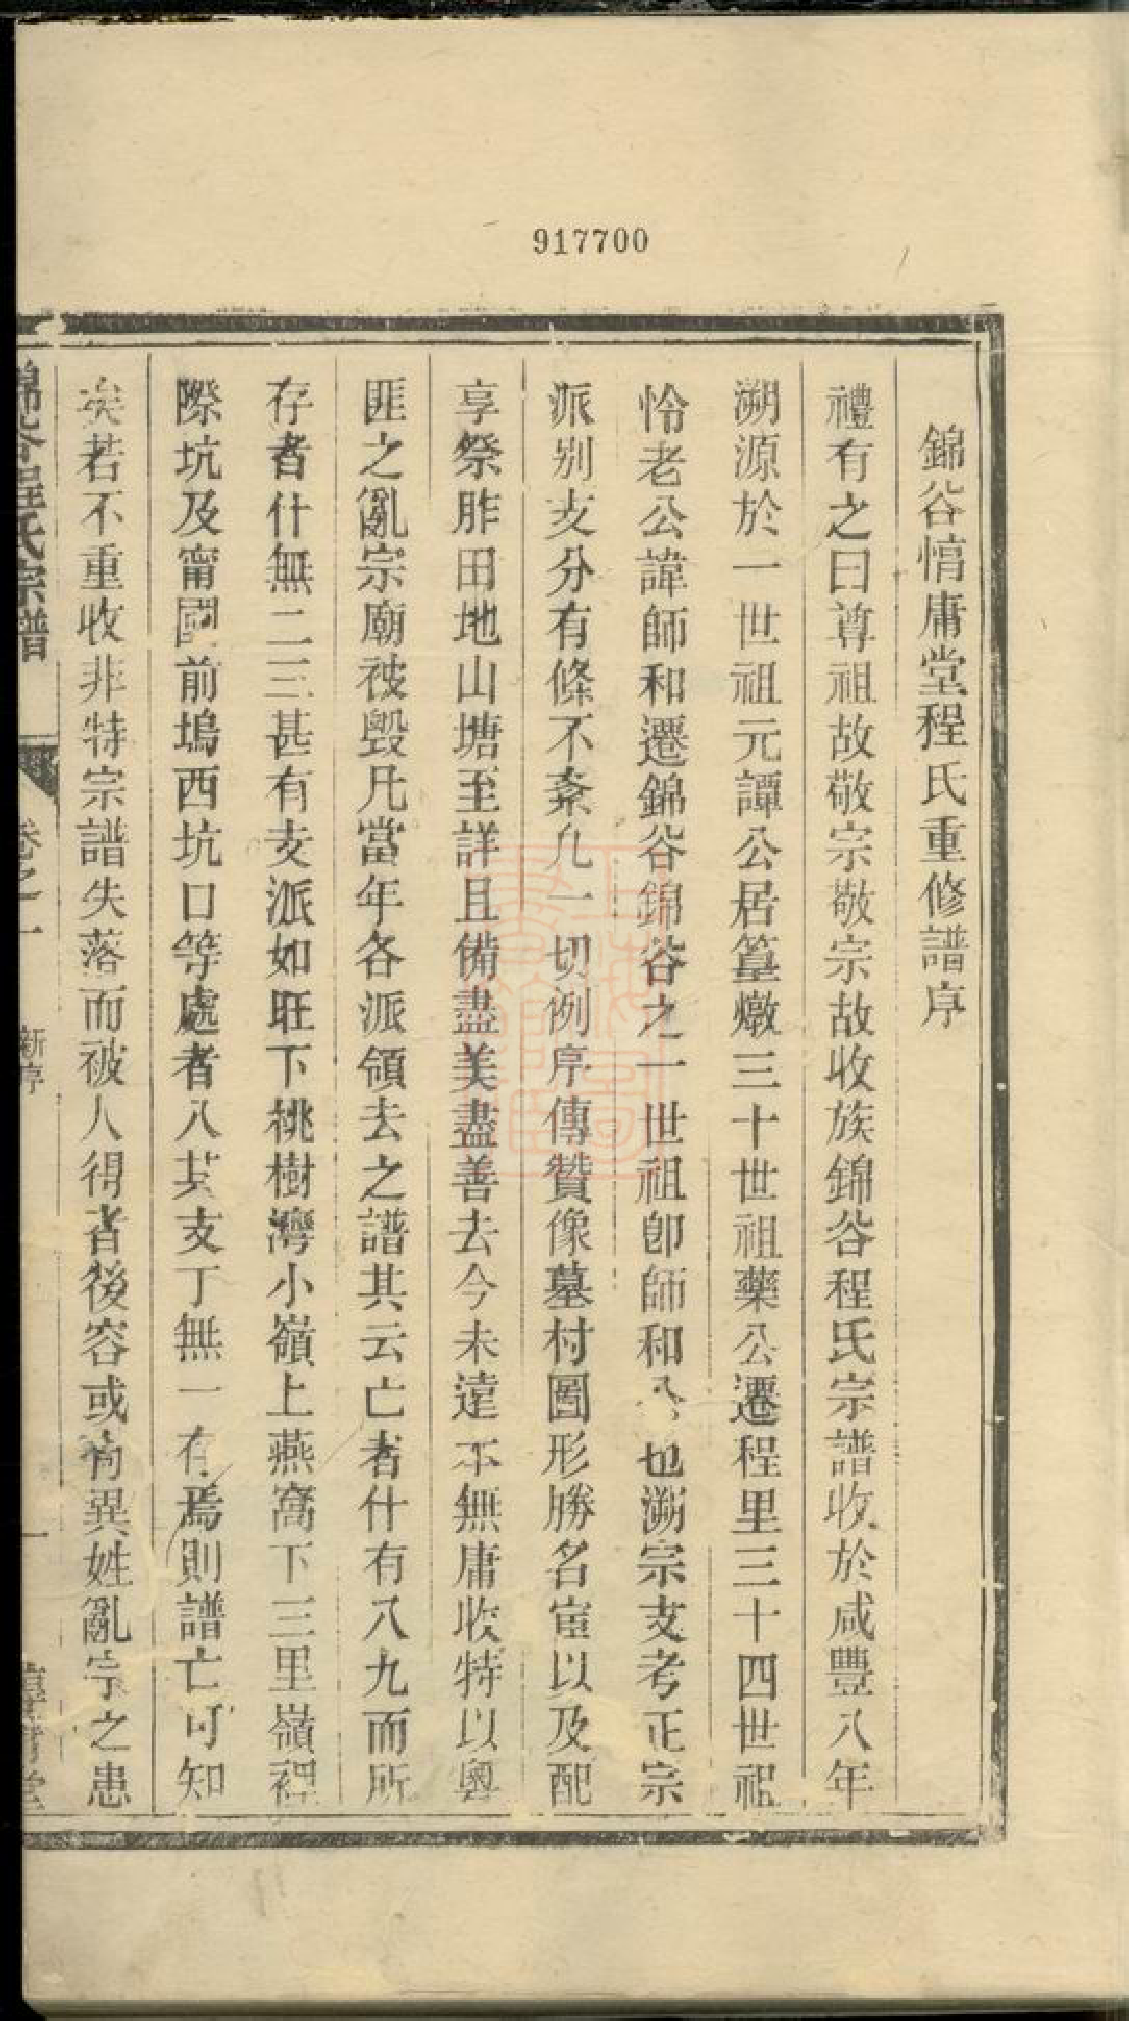 917700
錦谷惇庸堂程氏重修譜序
禮有之曰尊祖故敬宗敬宗故收族錦谷程氏宗譜收於咸豐八年
溯源於一世祖元譚公居篁墩三十世祖藥公遷程里三十四世祖
怜老公諱師和遷錦谷錦谷之一世祖卽師和公也溯宗支考正宗
派別支分有條不紊凢一切例序傳贊像墓村圖形勝名宦以及配
享祭胙田地山塘至詳且備盡美盡善去今未遠不無庸收特以粵
匪之亂宗廟被毀凡當年各派領去之譜其云亡者什有八九而所
存者什無二三甚有支派如旺下桃樹灣小嶺上燕窩下三里嶺裡
際坑及甯國前塢西坑口等處者八其支丁無一有焉則譜亡可知
矣若不重收非特宗譜失落而被人得者後容或有異姓亂宗之患
錦谷程氏宗譜
卷之一
新序
一